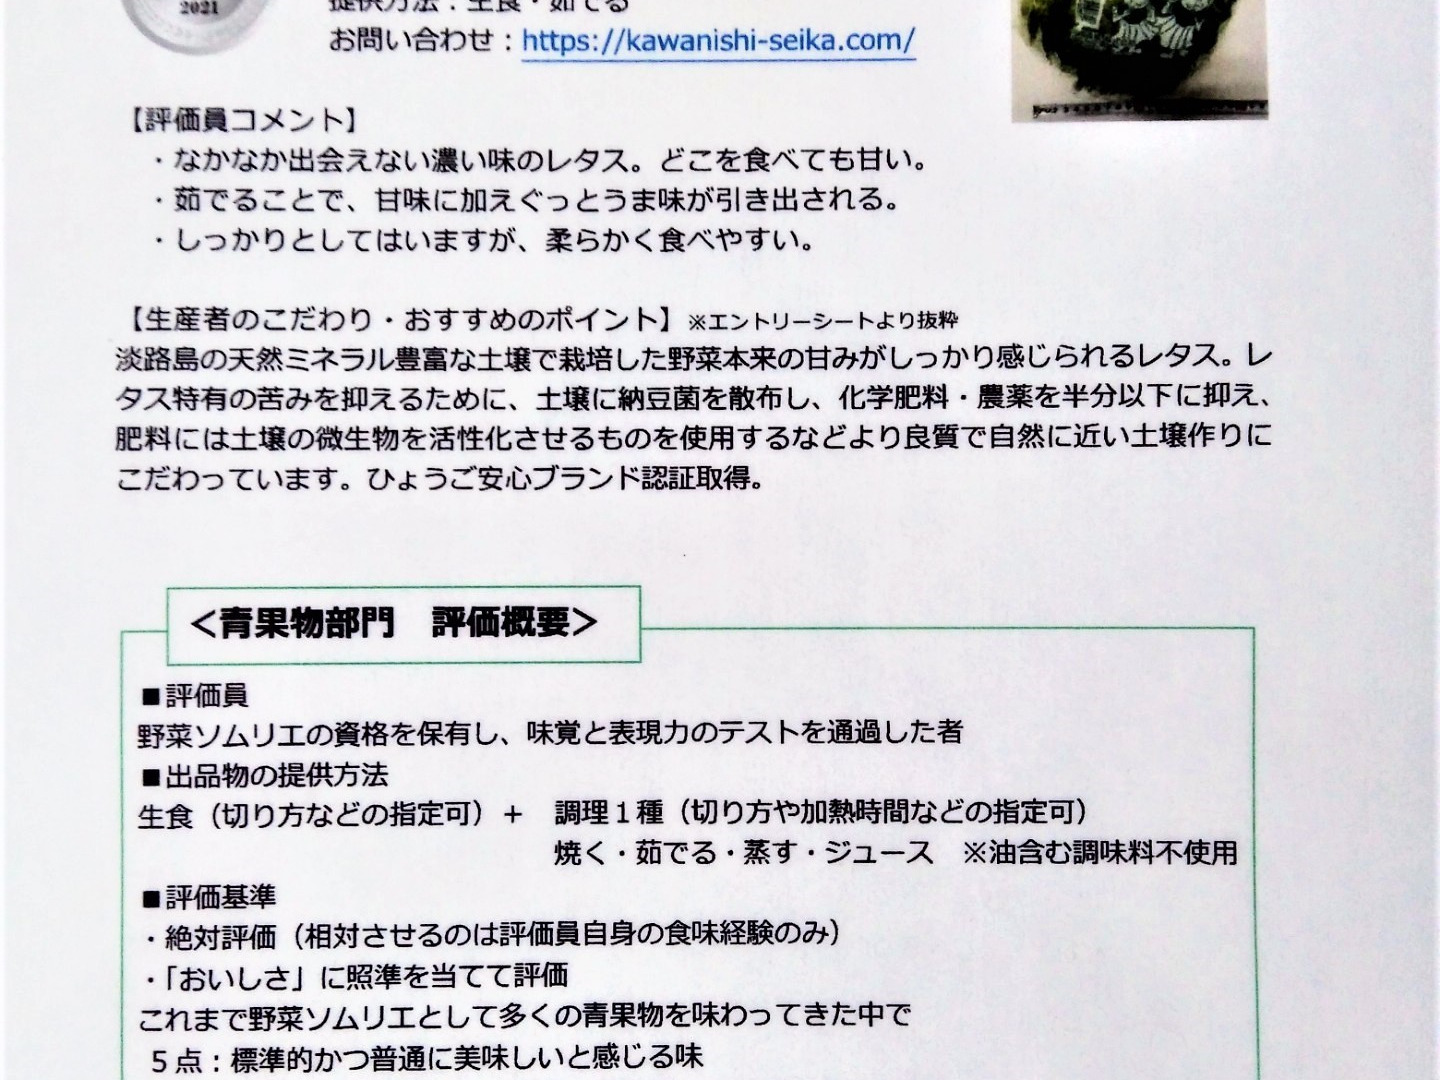 2021
提供方法：生食・茹でる
お問い合わせ：https://kawanishi-seika.com/
【評価員コメント】
・なかなか出会えない濃い味のレタス。どこを食べても甘い。
・茹でることで、甘味に加えぐっとうま味が引き出される。
・しっかりとしてはいますが、柔らかく食べやすい。
【生産者のこだわり・おすすめのポイント】※エントリーシートより抜粋
淡路島の天然ミネラル豊富な土壌で栽培した野菜本来の甘みがしっかり感じられるレタス。レ
タス特有の苦みを抑えるために、土壌に納豆菌を散布し、化学肥料・農薬を半分以下に抑え、
肥料には土壌の微生物を活性化させるものを使用するなどより良質で自然に近い土壌作りに
こだわっています。ひょうご安心ブランド認証取得。
＜青果物部門　評価概要＞
■評価員
野菜ソムリエの資格を保有し、味覚と表現力のテストを通過した者
■出品物の提供方法
生食（切り方などの指定可）＋　調理１種（切り方や加熱時間などの指定可）
焼く・茹でる・蒸す・ジュース　※油含む調味料不使用
■評価基準
・絶対評価（相対させるのは評価員自身の食味経験のみ）
・「おいしさ」に照準を当てて評価
これまで野菜ソムリエとして多くの青果物を味わってきた中で
５点：標準的かつ普通に美味しいと感じる味